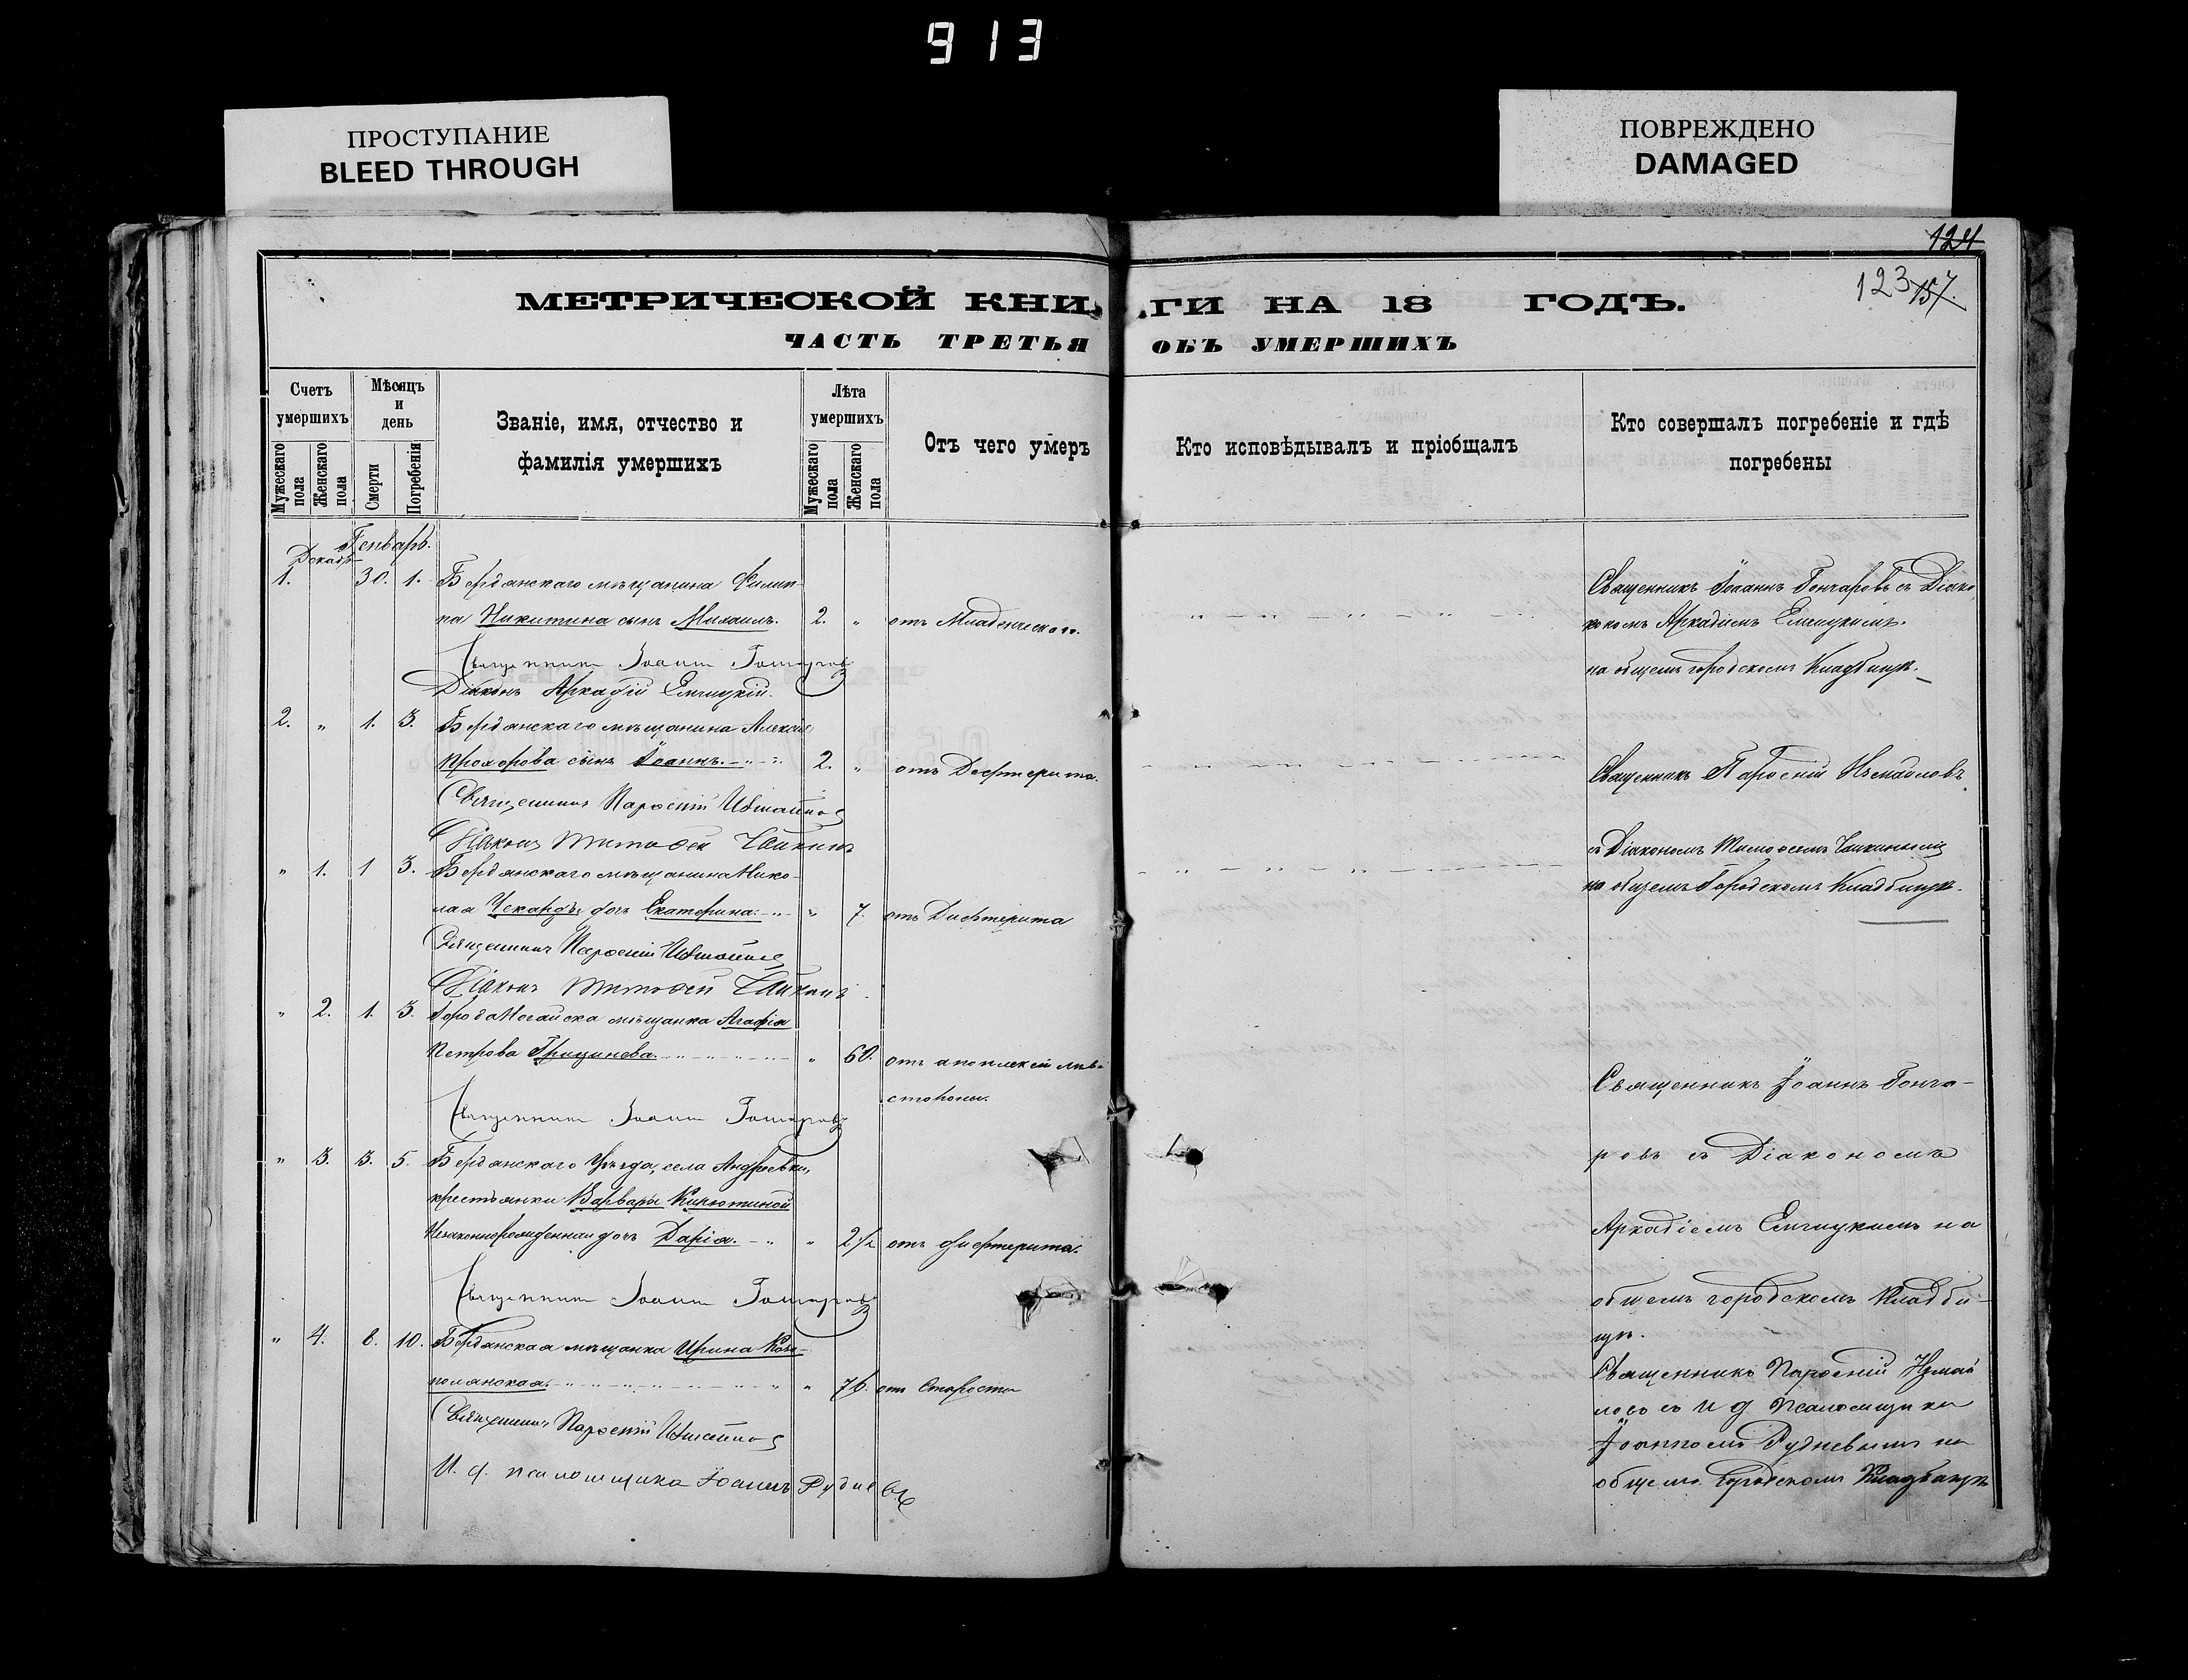 913
ПРОСТУПАНИЕ
BLEED THROUGH
ПОВРЕЖДЕНО
DAMAGED
124
123 157.
МЕТРИЧЕСКОЙ КНИ ГИ НА 18 ГОДЪ.
ЧАСТЬ ТРЕТЬЯ ОБЪ УМЕРШИХЪ
Счетъ умершихъ
Мужескаго пола
Женскаго пола
Мѣсяцъ и день
Смерти
Погребенія
Званіе, имя, отчество и фамилія умершихъ
Лѣта умершихъ
Мужескаго пола
Женскаго пола
Отъ чего умеръ
Кто исповѣдывалъ и пріобщалъ
Кто совершалъ погребеніе и гдѣ погребены
Генварь.
Декабр
1. 30. 1. Бердянскаго мѣщанина Филип-
па Никитина сынъ Михаилъ. 2. " отъ Младенческаго.
Священникъ Іоаннъ Гончаровъ
Діаконъ Аркадій Емчицкій.
Священникъ Іоаннъ Гончаровъ съ Діако
кономъ Аркадіемъ Емчицкимъ.
на общемъ городскомъ Кладбищѣ.
2. " 1. 3. Бердянскаго мѣщанина Алексѣя
Прохорова сынъ Іоаннъ. 2. " отъ Дефтерита.
Священникъ Парѳеній Измаиловъ
Діаконъ Тимоѳей Чайкинъ
Священникъ Парѳеній Измаиловъ
съ Діакономъ Тимоѳеемъ Чайкинымъ
на общемъ Городскомъ Кладбищѣ.
" 1. 1 3. Бердянскаго мѣщанина Нико-
лая дочь Екатерина. " 7. отъ Дифтерита
Священникъ Парѳеній Измаиловъ
Діаконъ Тимоѳей Чайкинъ
" 2. 1. 3. Города Ногайска мѣщанка Агафія
Петрова Грицинева. " 60. отъ апоплексіи лѣв.
стороны.
Священникъ Іоаннъ Гончаровъ
Священникъ Іоаннъ Гонча-
ровъ съ Діакономъ
Аркадіемъ Емчицкимъ на
общемъ городскомъ Кладби-
щѣ.
" 3. 3. 5. Бердянскаго Уѣзда, села Андреевки,
крестьянки Варвары Кикотиной
Незаконнорожденная дочь Дарія. " 2 1/2 отъ дифтерита.
Священникъ Іоаннъ Гончаровъ
" 4. 8. 10. Бердянская мѣщанка Ирина
" 76. отъ Старости
Священникъ Парѳеній Измаиловъ
И. д. псаломщика Іоаннъ Рудневъ
Священникъ Парѳеній Измаи
ловъ съ и д Псаломщика
Іоанномъ Рудневымъ на
общемъ Городскомъ Кладбищѣ